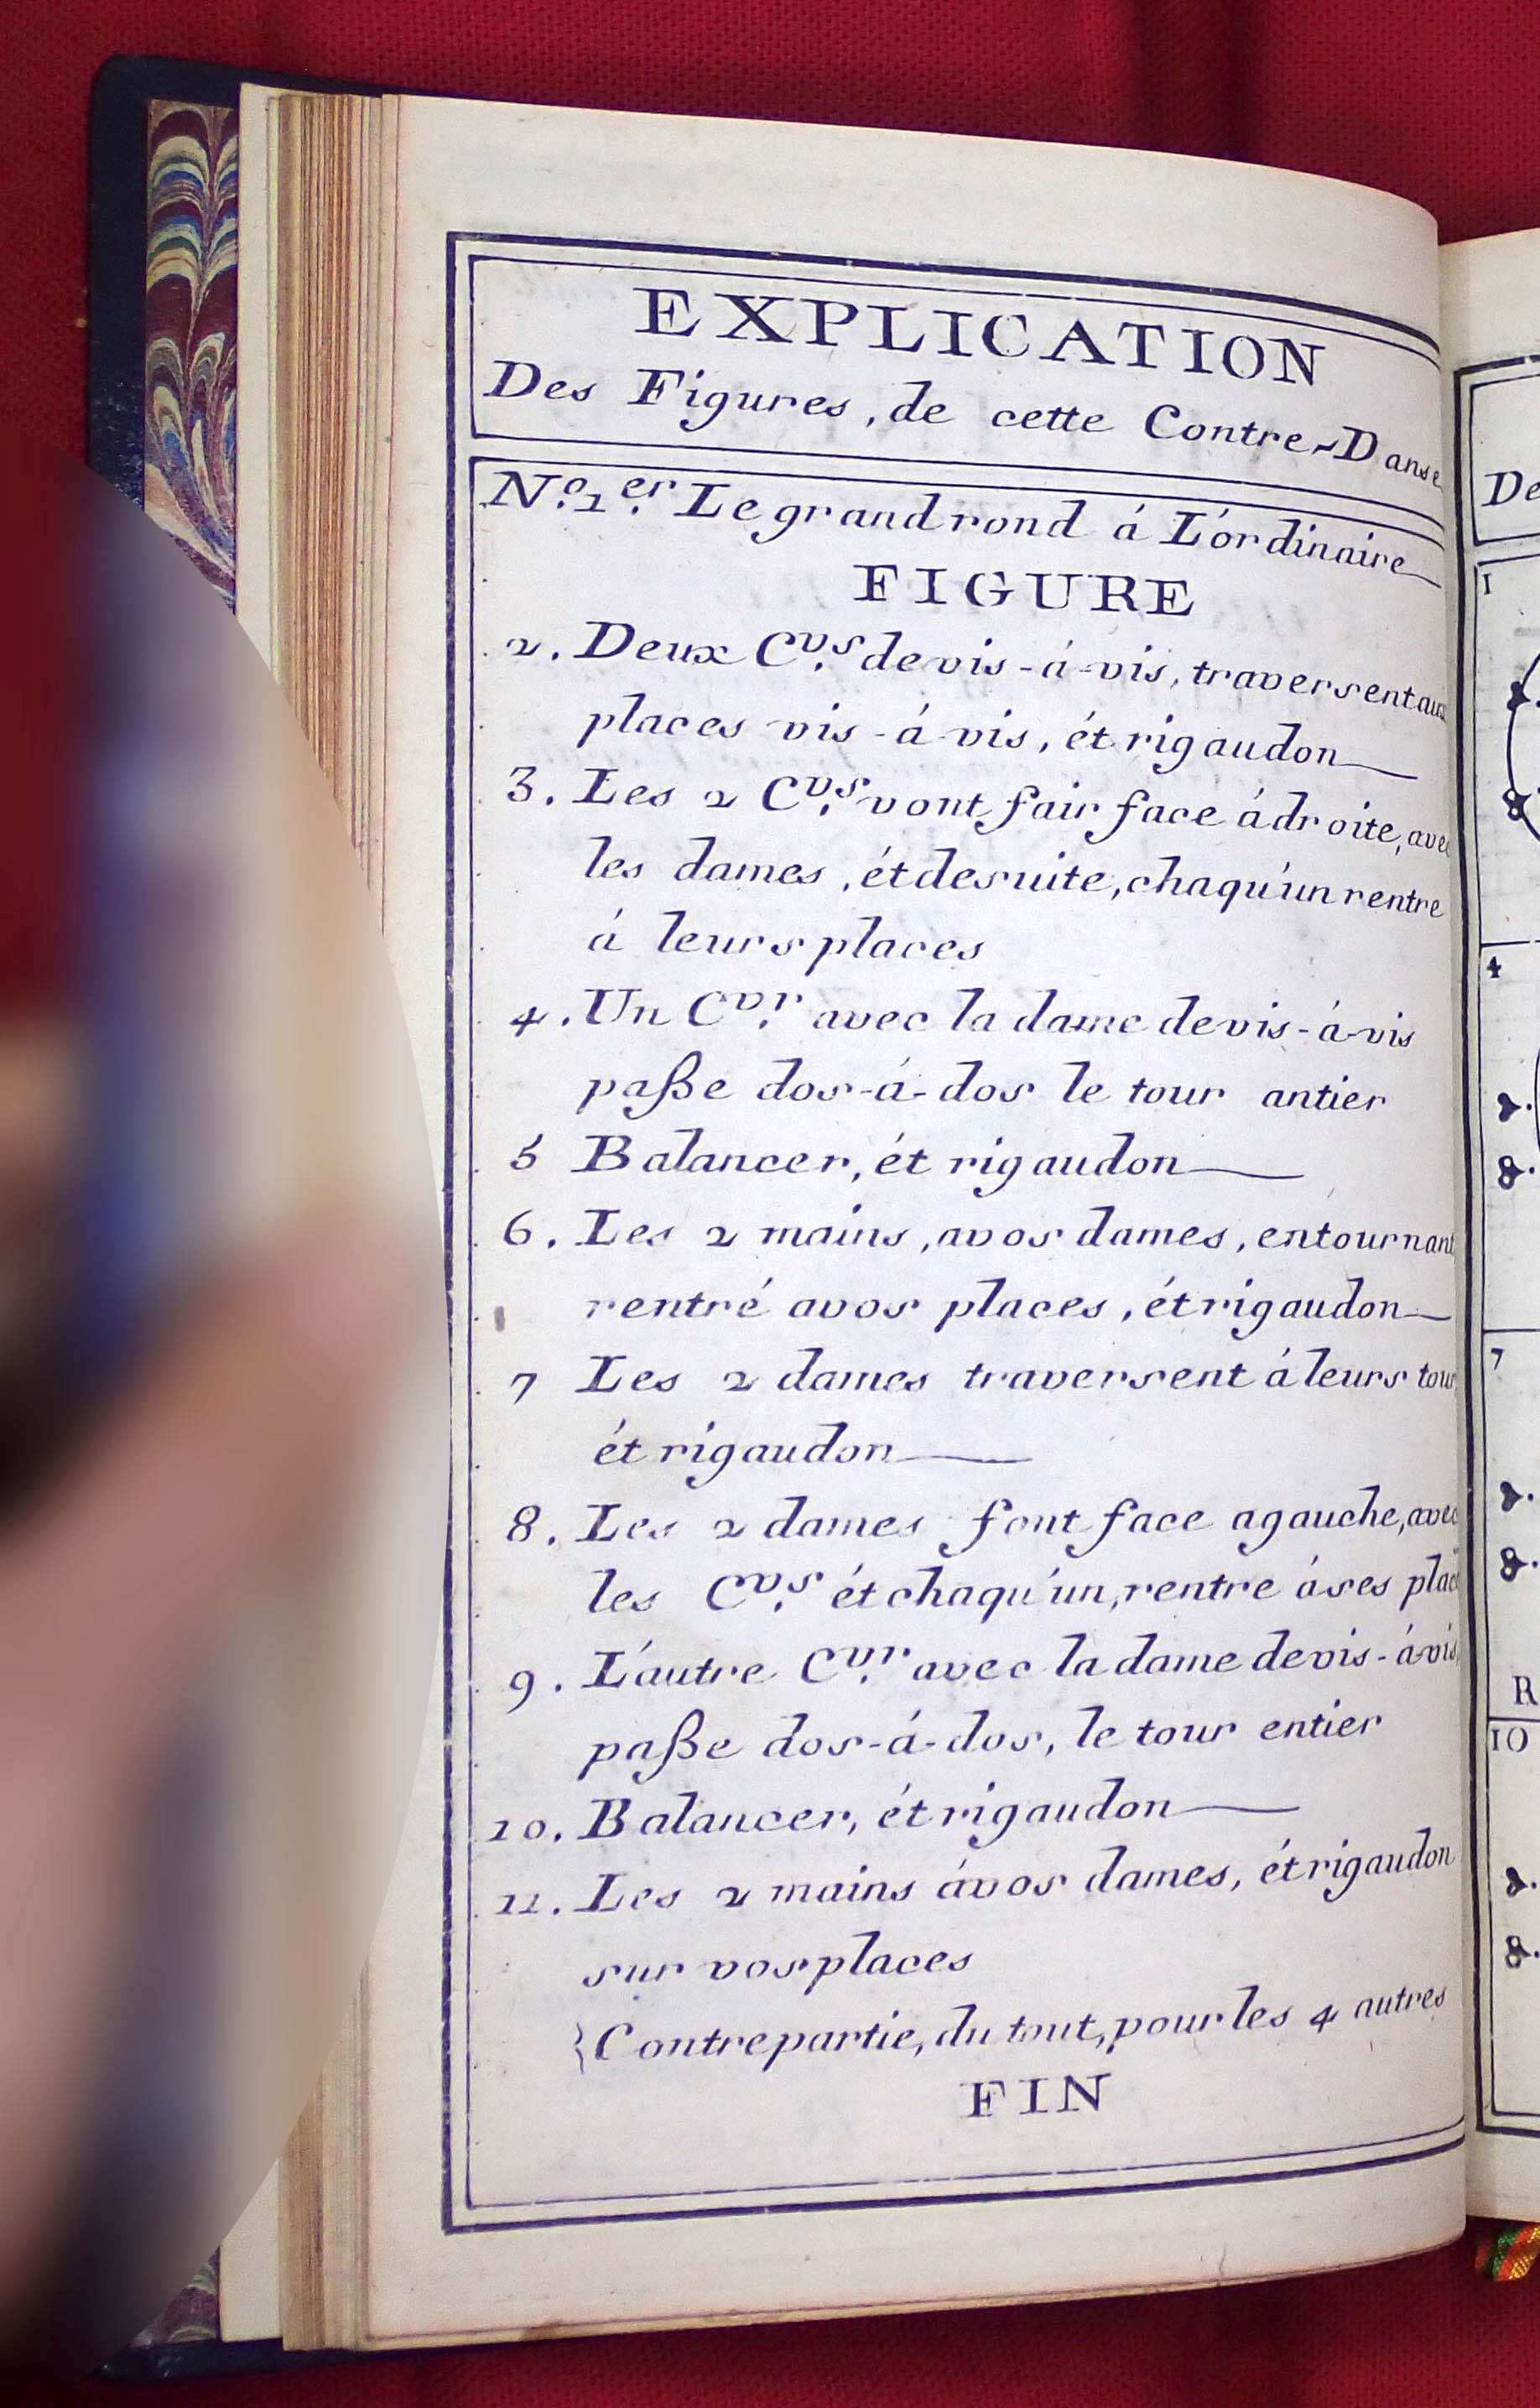 EXPLICATION
Des Figures, de cette Contre-Danse
N.º 1.er Le grand rond á L'ordinaire
FIGURE
2. Deux C.vs de vis-á-vis, traversent aux
places vis-á-vis, ét rigaudon
3. Les 2 C.vs vont fair face á droite, avec
les dames, ét desuite, chaqu'un rentre
á leurs places
4. Un C.vr avec la dame de vis-á-vis
paße dos-á-dos le tour antier
5 Balancer, ét rigaudon
6. Les 2 mains, avos dames, entournant
rentré avos places, ét rigaudon
7 Les 2 dames traversent á leurs tour
ét rigaudon
8. Les 2 dames font face agauche, avec
les C.vs ét chaqu'un, rentre áses place
9. L'autre C.vr avec la dame de vis-á-vis,
paße dos-á-dos, le tour entier
10. Balancer, ét rigaudon
11. Les 2 mains ávos dames, ét rigaudon
sur vos places
{Contrepartie, du tout, pour les 4 autres
FIN
De
1
8
4
8.
7
8.
R
10
8.